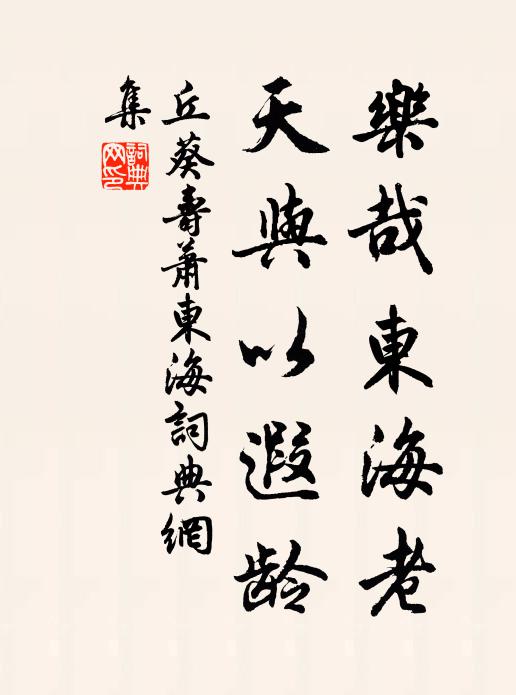 樂哉東海老
天與以遐龄
丘葵壽蕭東海詞典網
集
詞典網印